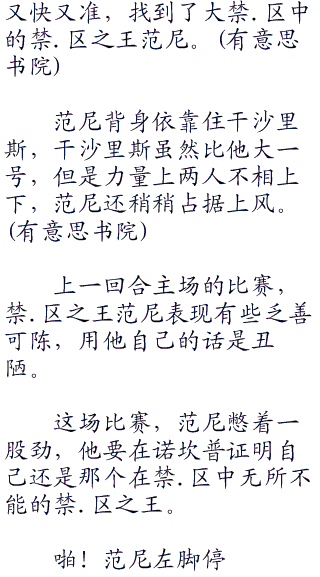 又快又准，找到了大禁.区中
的禁.区之王范尼。(有意思
书院)
范尼背身依靠住干沙里
斯，干沙里斯虽然比他大一
号，但是力量上两人不相上
下，范尼还稍稍占据上风。
(有意思书院)
上一回合主场的比赛，
禁.区之王范尼表现有些乏善
可陈，用他自己的话是丑
陋。
这场比赛，范尼憋着一
股劲，他要在诺坎普证明自
己还是那个在禁.区中无所不
能的禁.区之王。
啪！范尼左脚停